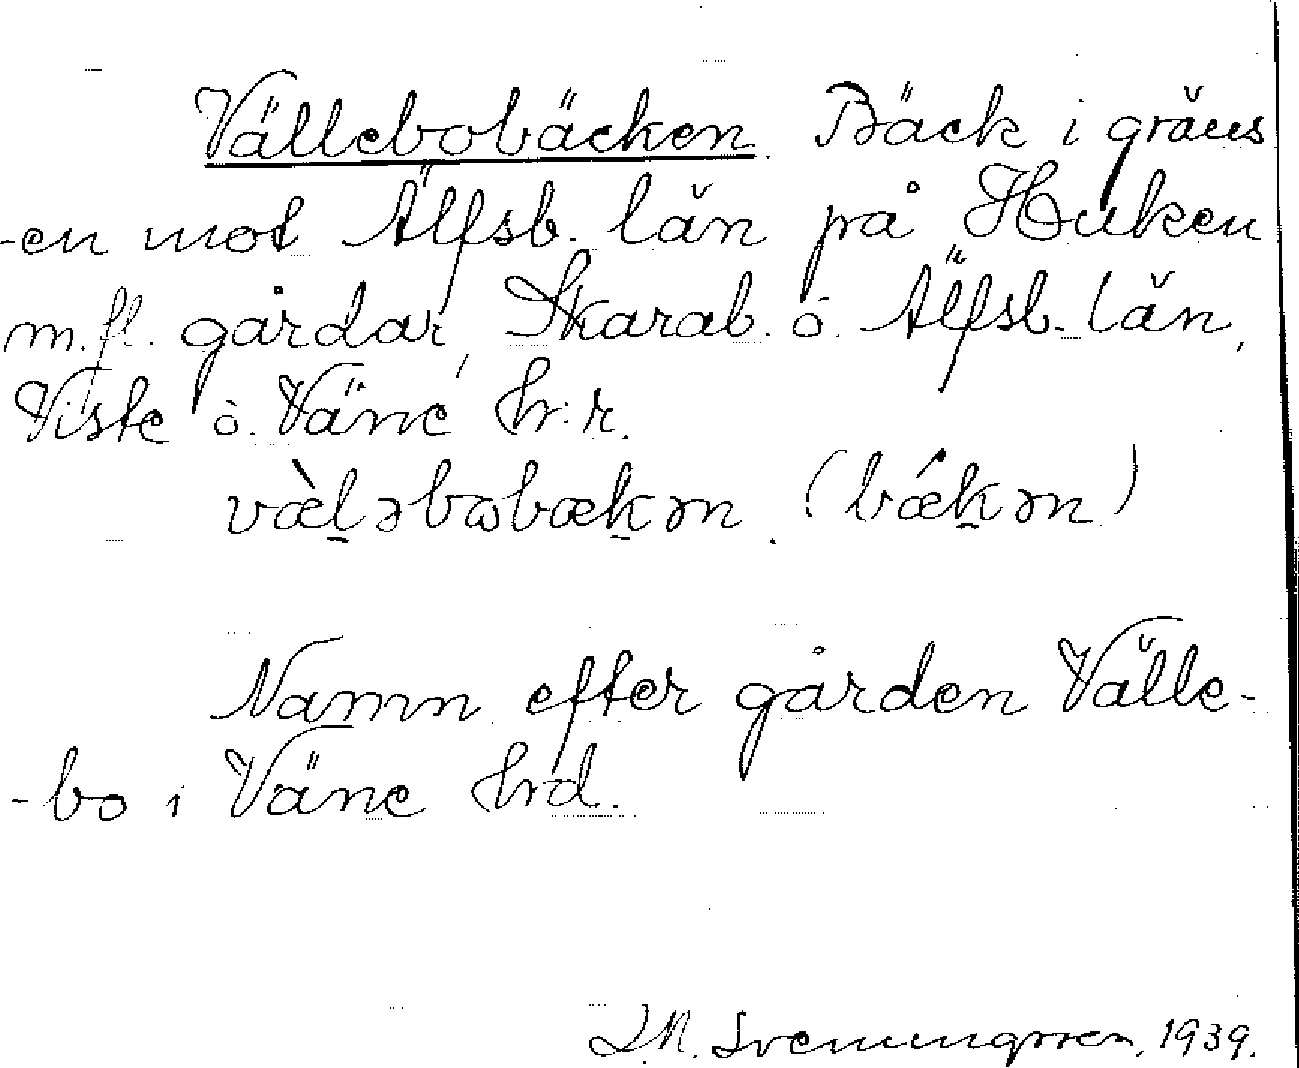 Vällebobäcken. Bäck i gräns
-en mot Älfsb. län på Huken
m.fl. gårdar, Skarab. o. Älfsb. län,
Viste o. Väne hr:r.
væ̀ḻəbωbæḵən. (bǽḵən)
Namn efter gården Välle-
-bo i Väne hrd.
J.N. Svenningsson, 1939.